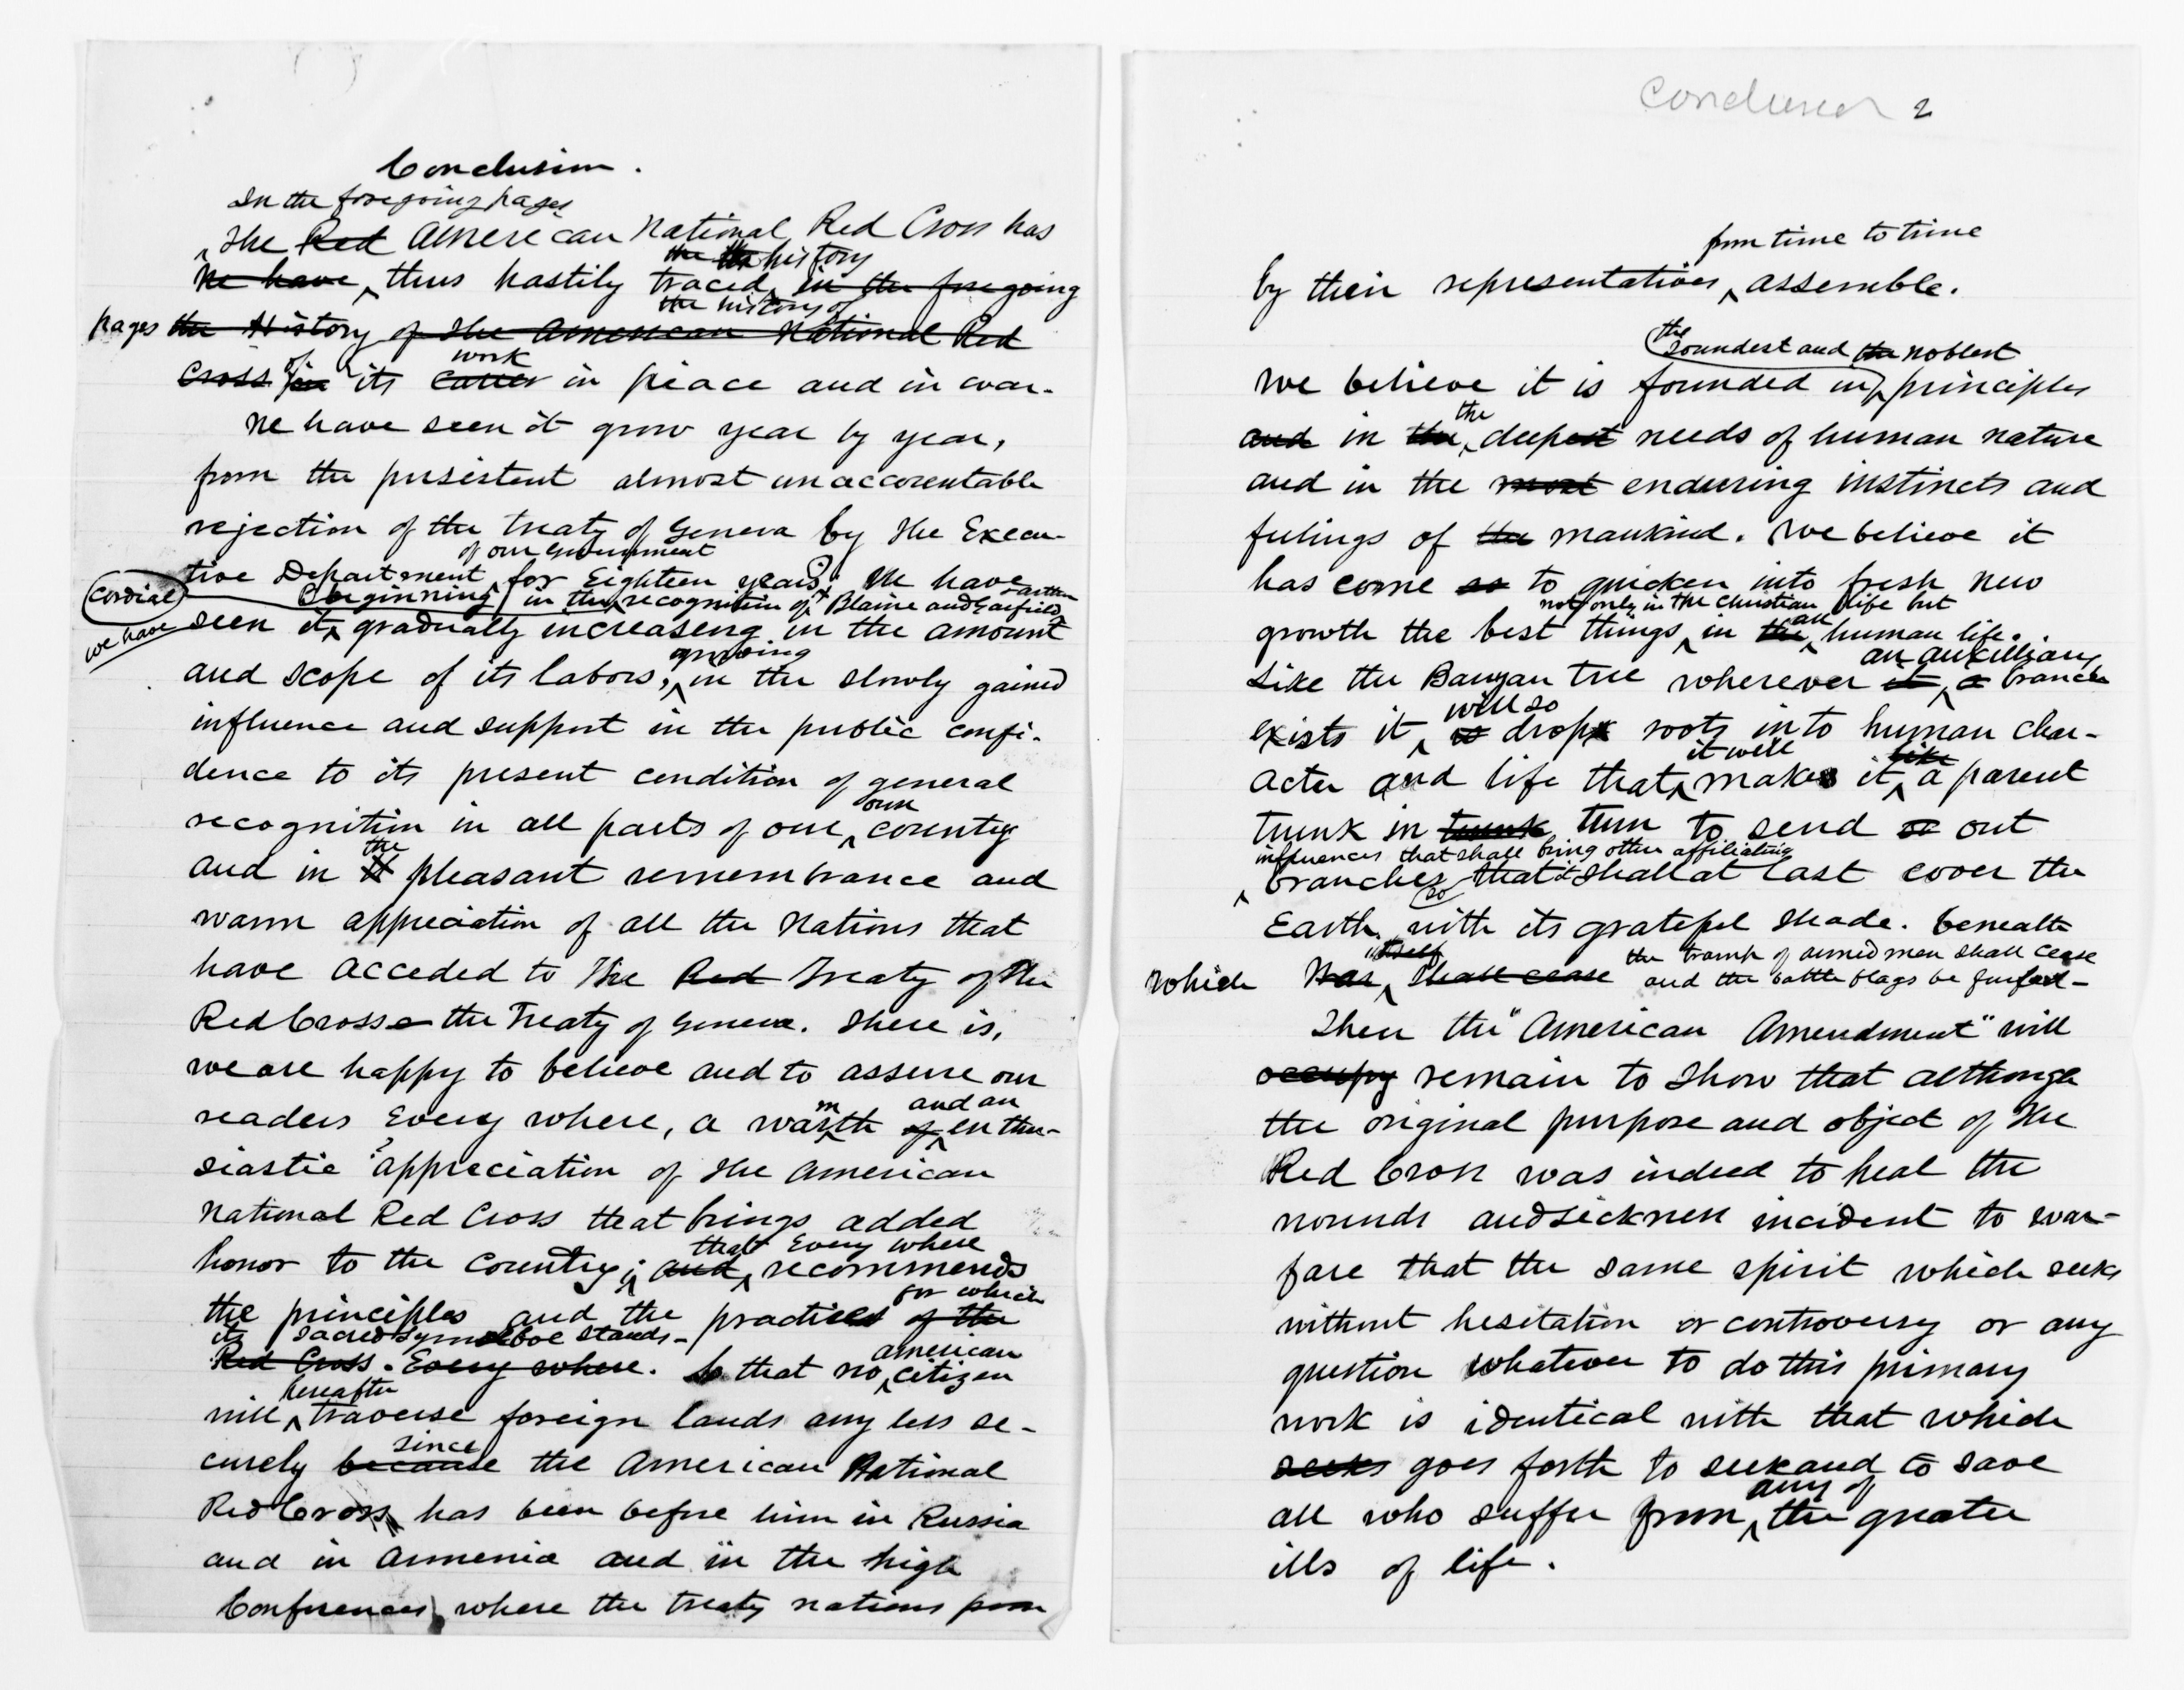 Conclusion.
In the foregoing pages
The Red American National Red Cross has
the the history
We have, thus hastily traced, in the foregoing
the history of
pages the History of the American National Red
of work
Cross in its career in peace and in war.
We have seen it grow year by year,
from the persistent almost unaccountable
rejection of the treaty of Geneva by the Execu-
of our government
tive Department for Eighteen years; We have
cordial beginning in the recognition of Blaine and Garfield
we have seen it gradually increasing in the amount
growing
and scope of its labors, in the slowly gained
influence and support in the public confi-
dence to its present condition of general
own
recognition in all parts of our country
the
and in pleasant remembrance and
warm appreciation of all the Nations that
have acceded to The Red Treaty of the
Red Cross the Treaty of Geneva. There is,
we are happy to believe and to assure our
m and an
readers Every where, a warth of enthu-
siastic appreciation of the American
National Red Cross that brings added
that Every where
honor to the Country; and recommends
for which
the principles and the practices of the
its sacred symbol stands-
Red Cross. Every where. So that no citizen
american
hereafter
will traverse foreign lands any less se-
since
curely because the American National
Red Cross has been before him in Russia
and in Armenia and in the high
Conferences where the treaty nations from
Conclusion 2
from time to time
by their representatives, assemble.
the soundest and the noblest
We believe it is founded in principles
the
and in the deepest needs of human nature
and in the most enduring instincts and
feelings of the mankind. We believe it
has come so to quicken into fresh new
not only in the Christian life but
all
growth the best things in the human life.
an auxilliary
Like the Banyan tree wherever it, a branch
will so
exists it is drops roots into human char-
it will like
acter and life that makes it a parent
trunk in trunk turn to send out
influences that shall bring other affiliating
branches so that it shall at last cover the
Earth with its grateful shade. beneath
itself the tramp of armed men shall cease
which War shall cease and the battle flags be furled-
Then the "American Amendment" will
occupy remain to show that although
the original purpose and object of the
Red Cross was indeed to heal the
wounds and sickness incident to war-
fare that the same spirit which seeks
without hesitation or controversy or any
question whatever to do this primary
work is identical with that which
seeks goes forth to seek and to save
any of
all who suffer from the greater
ills of life.